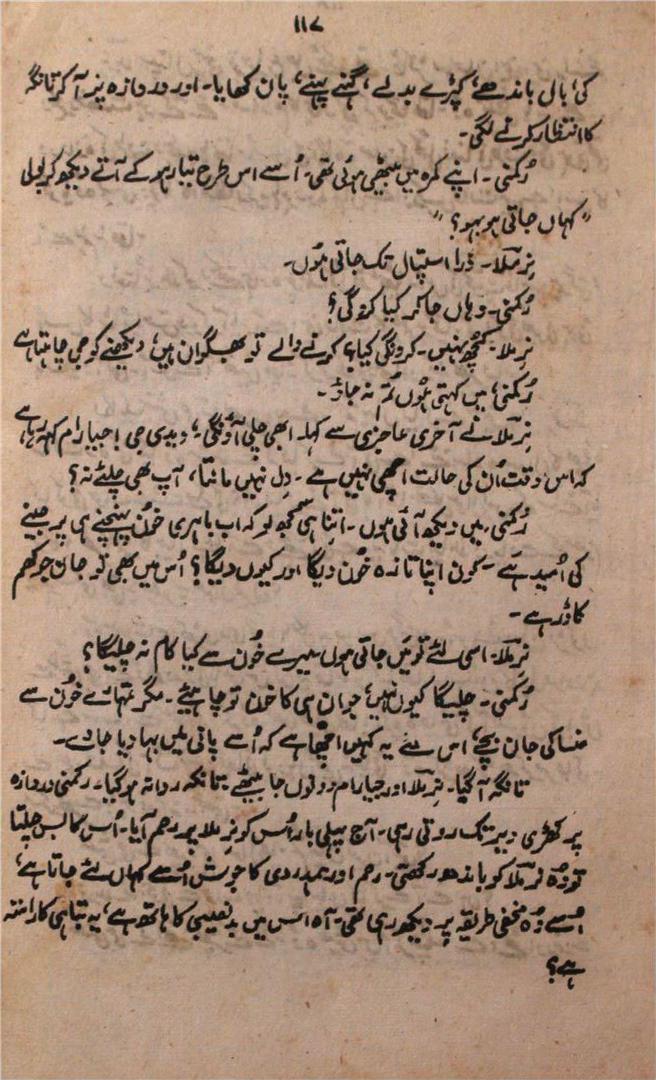 ۱۱۷
کی، بال باندھے، کپڑے بدلے، گہنے پہنے، پان کھایا۔ اور دروازہ پر آ کر تانگہ
کا انتظار کرنے لگی۔
رُکمنی۔ اپنے کمرہ میں بیٹھی ہوئی تھی۔ اُسے اس طرح تیار ہو کے آتے دیکھ کر بولی
"کہاں جاتی ہو بہو؟"
نِرملا۔ ذرا اسپتال تک جاتی ہوں۔
رُکمنی۔ وہاں جا کر کیا کروگی؟
نِرملا۔ کچُھ نہیں۔ کرونگی کیا؟ کرنے والے تو بھگوان ہیں، دیکھنے کو جی چاہتا ہے
رُکمنی، میں کہتی ہُوں تُم نہ جاؤ۔
نِرملا نے آخری عاجزی سے کہا۔ ابھی چلی آؤنگی، دیدی جی! جیارام کہہ رہے ہیں،
کہ اس وقت اُن کی حالت اچھی نہیں ہے۔ دِل نہیں مانتا، آپ بھی چلئے نہ؟
رُکمنی۔ میں دیکھ آئی ہوں۔ اتنا ہی سمجھ لو کہ اب باہری خُون پہنچنے ہی پر جینے
کی اُمید ہے۔ کون اپنا تازہ خُون دیگا اور کیوں دیگا؟ اُس میں بھی تو جان جوکھم
کا ڈر ہے۔
نِرملا۔ اسی لئے تو میَں جاتی ہوں میرے خُون سے کیا کام نہ چلیگا؟
رُکمنی۔ چلیگا کیوں نہیں، جوان ہی کا خون تو چاہیئے۔ مگر تمہارے خُون سے
منسا کی جان بچے، اس سے یہ کہیں اچھّا ہے کہ اُسے پانی میں بہا دیا جائے۔
تانگہ آ گیا۔ نِرملا اور جیارام دونوں جا بیٹھے۔ تانگہ روانہ ہو گیا۔ رکمنی دروازہ
پر کھڑی دیر تک روتی رہی۔ آج پہلی بار اُس کو نِرملا پر رحم آیا۔ اُس کا بس چلتا
تو وُہ نرملا کو باندھ رکھتی۔ رحم اور ہمدردی کا جوش اُسے کہاں لئے جاتا ہے،
اِسے وُہ مخفی طریقہ پر دیکھ رہی تھی۔ آہ اس میں بدنصیبی کا ہاتھ ہے، یہ تباہی کا راستہ
ہے؟